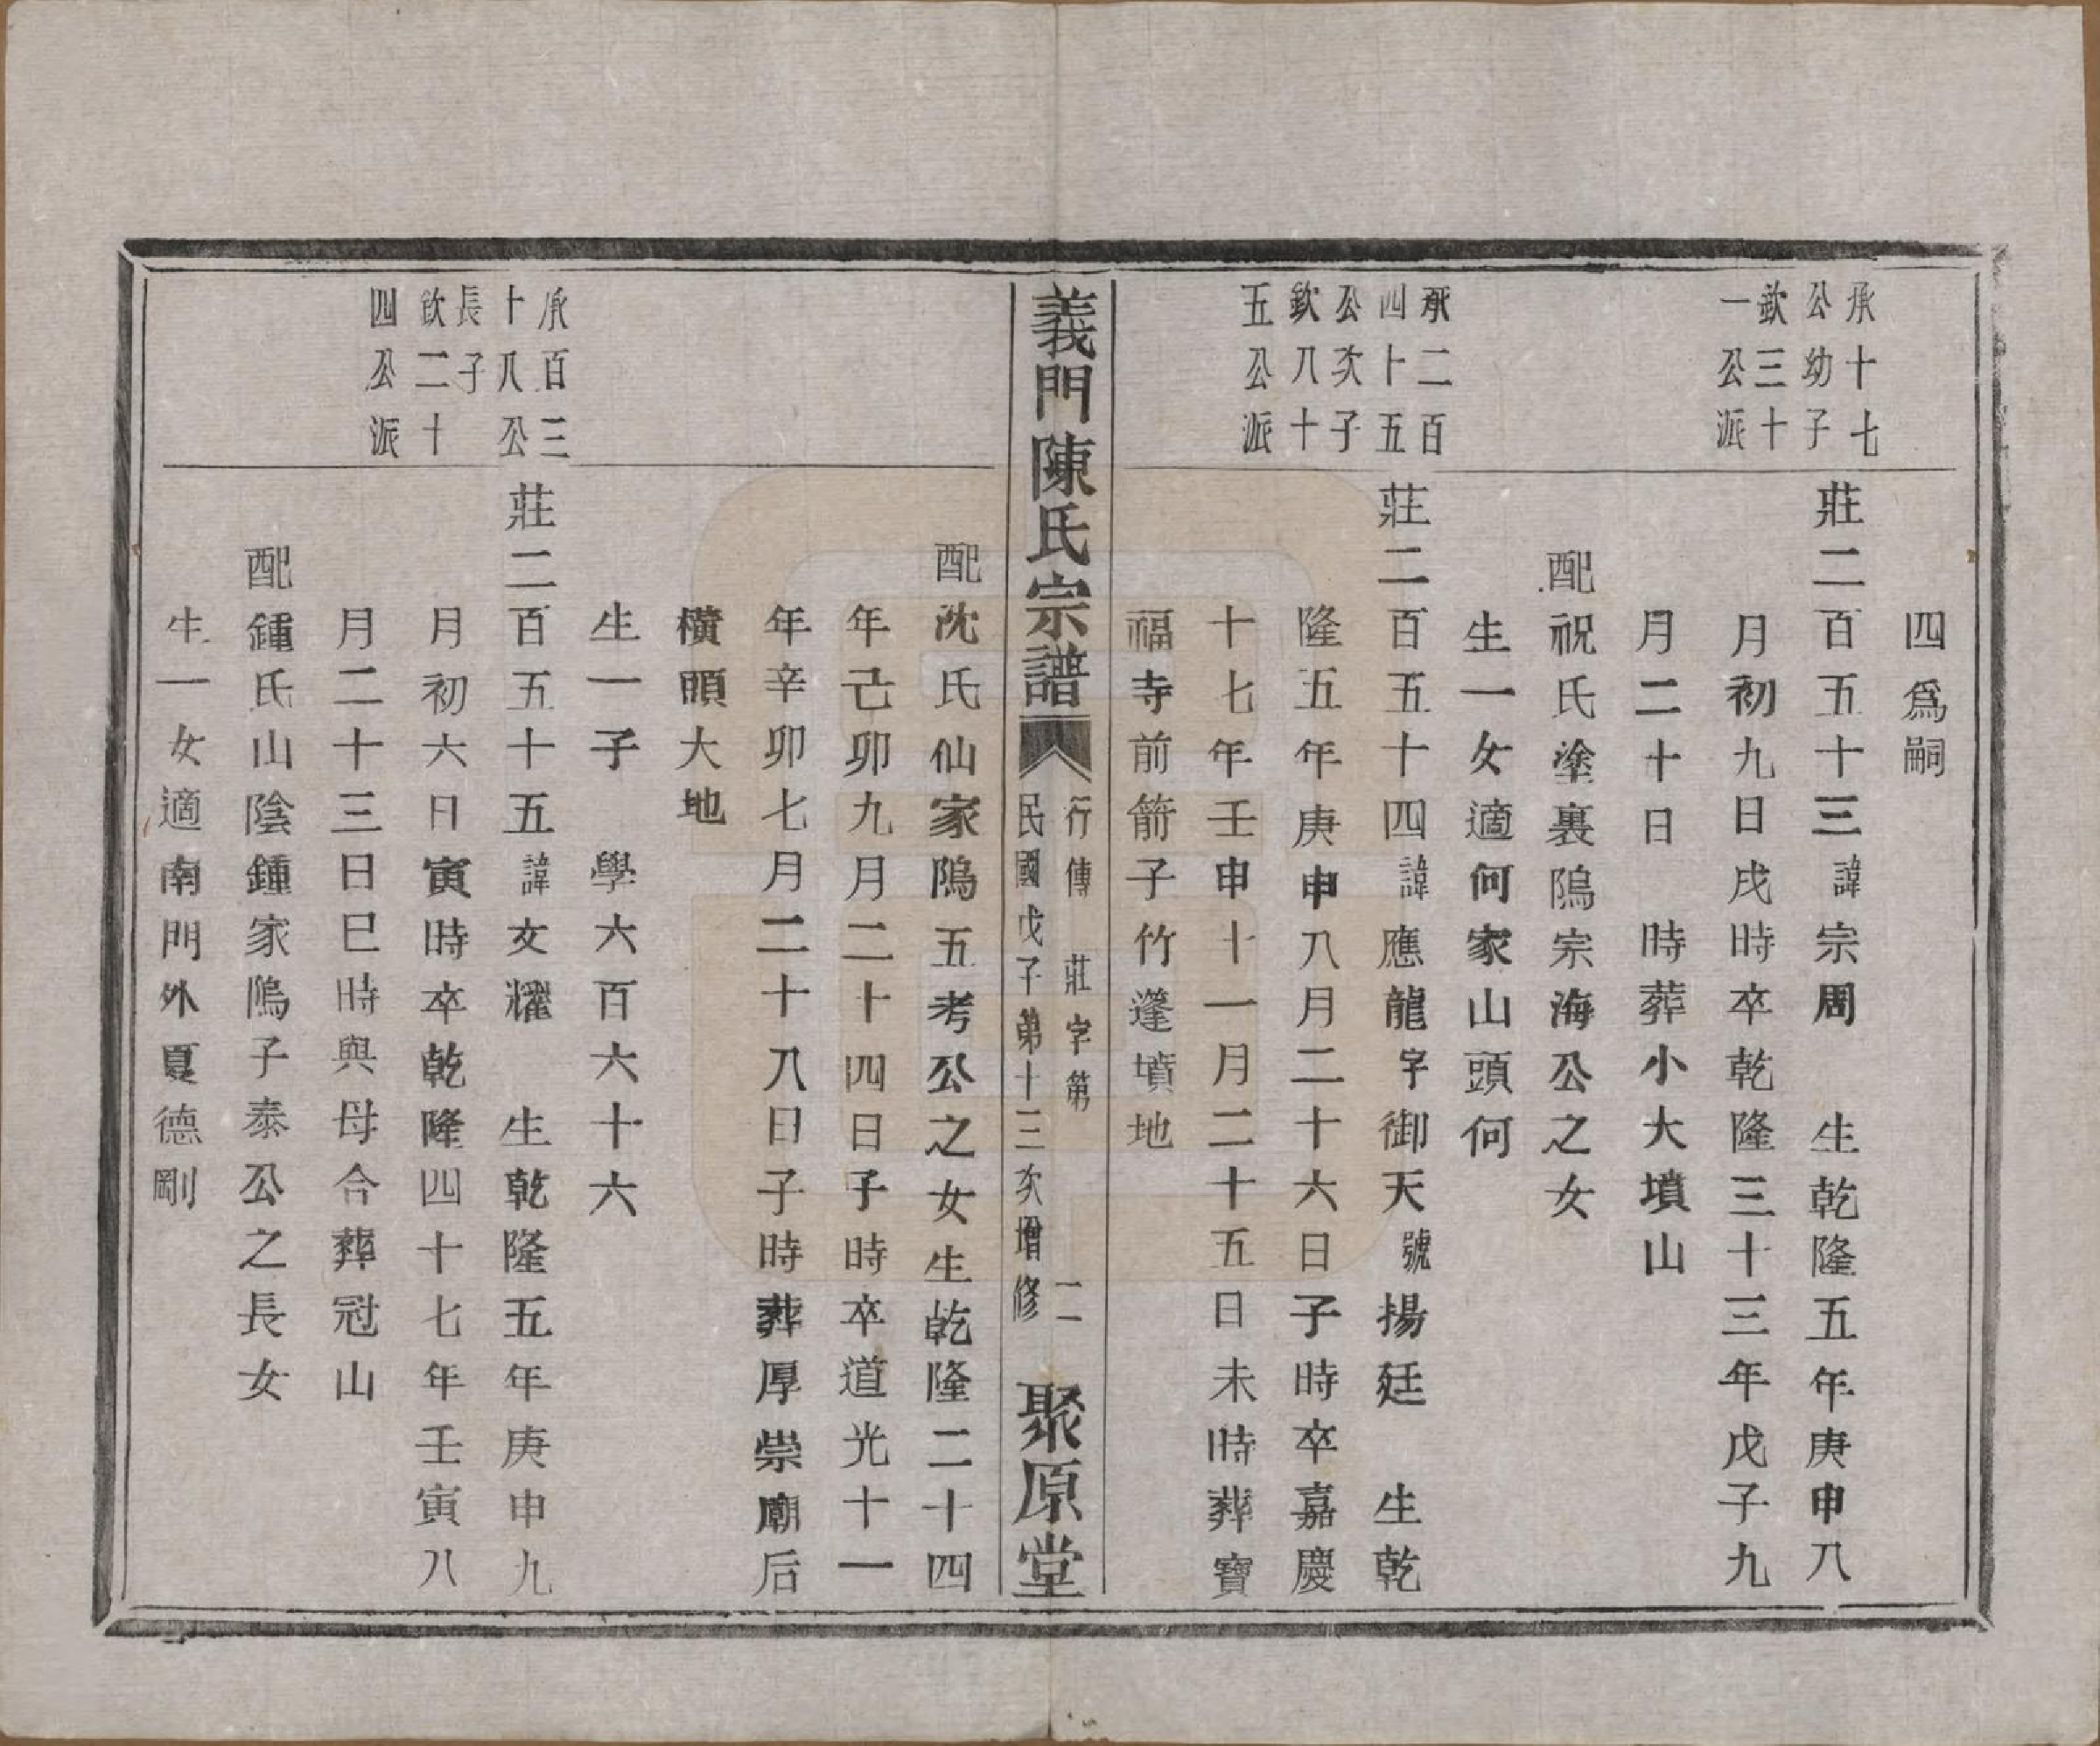 四爲嗣
承十七
公幼子
欽三十
一公派
莊二百五十三諱宗周 生乾隆五年庚申八
月初九日戌時卒乾隆三十三年戊子九
月二十日 時葬小大墳山
配祝氏塗裏隖宗海公之女
生一女適何家山頭何
承二百
四十五
公次子
欽八十
五公派
莊二百五十四諱應龍字御天號揚廷 生乾
隆五年庚申八月二十六日子時卒嘉慶
十七年壬申十一月二十五日未時葬寶
福寺前箭子竹蓬墳地
義門陳氏宗譜
行傳 莊字第 二一
民國戊子第十三次增修
聚原堂
配沈氏仙家隖五考公之女生乾隆二十四
年己卯九月二十四日子時卒道光十一
年辛卯七月二十八日子時葬厚崇廟后
橫頭大地
生一子 學六百六十六
承百三
十八公
長子
欽二十
四公派
莊二百五十五諱文耀 生乾隆五年庚申九
月初六日寅時卒乾隆四十七年壬寅八
月二十三日巳時與母合葬冠山
配鍾氏山陰鍾家隖子泰公之長女
生一女適南門外夏德剛